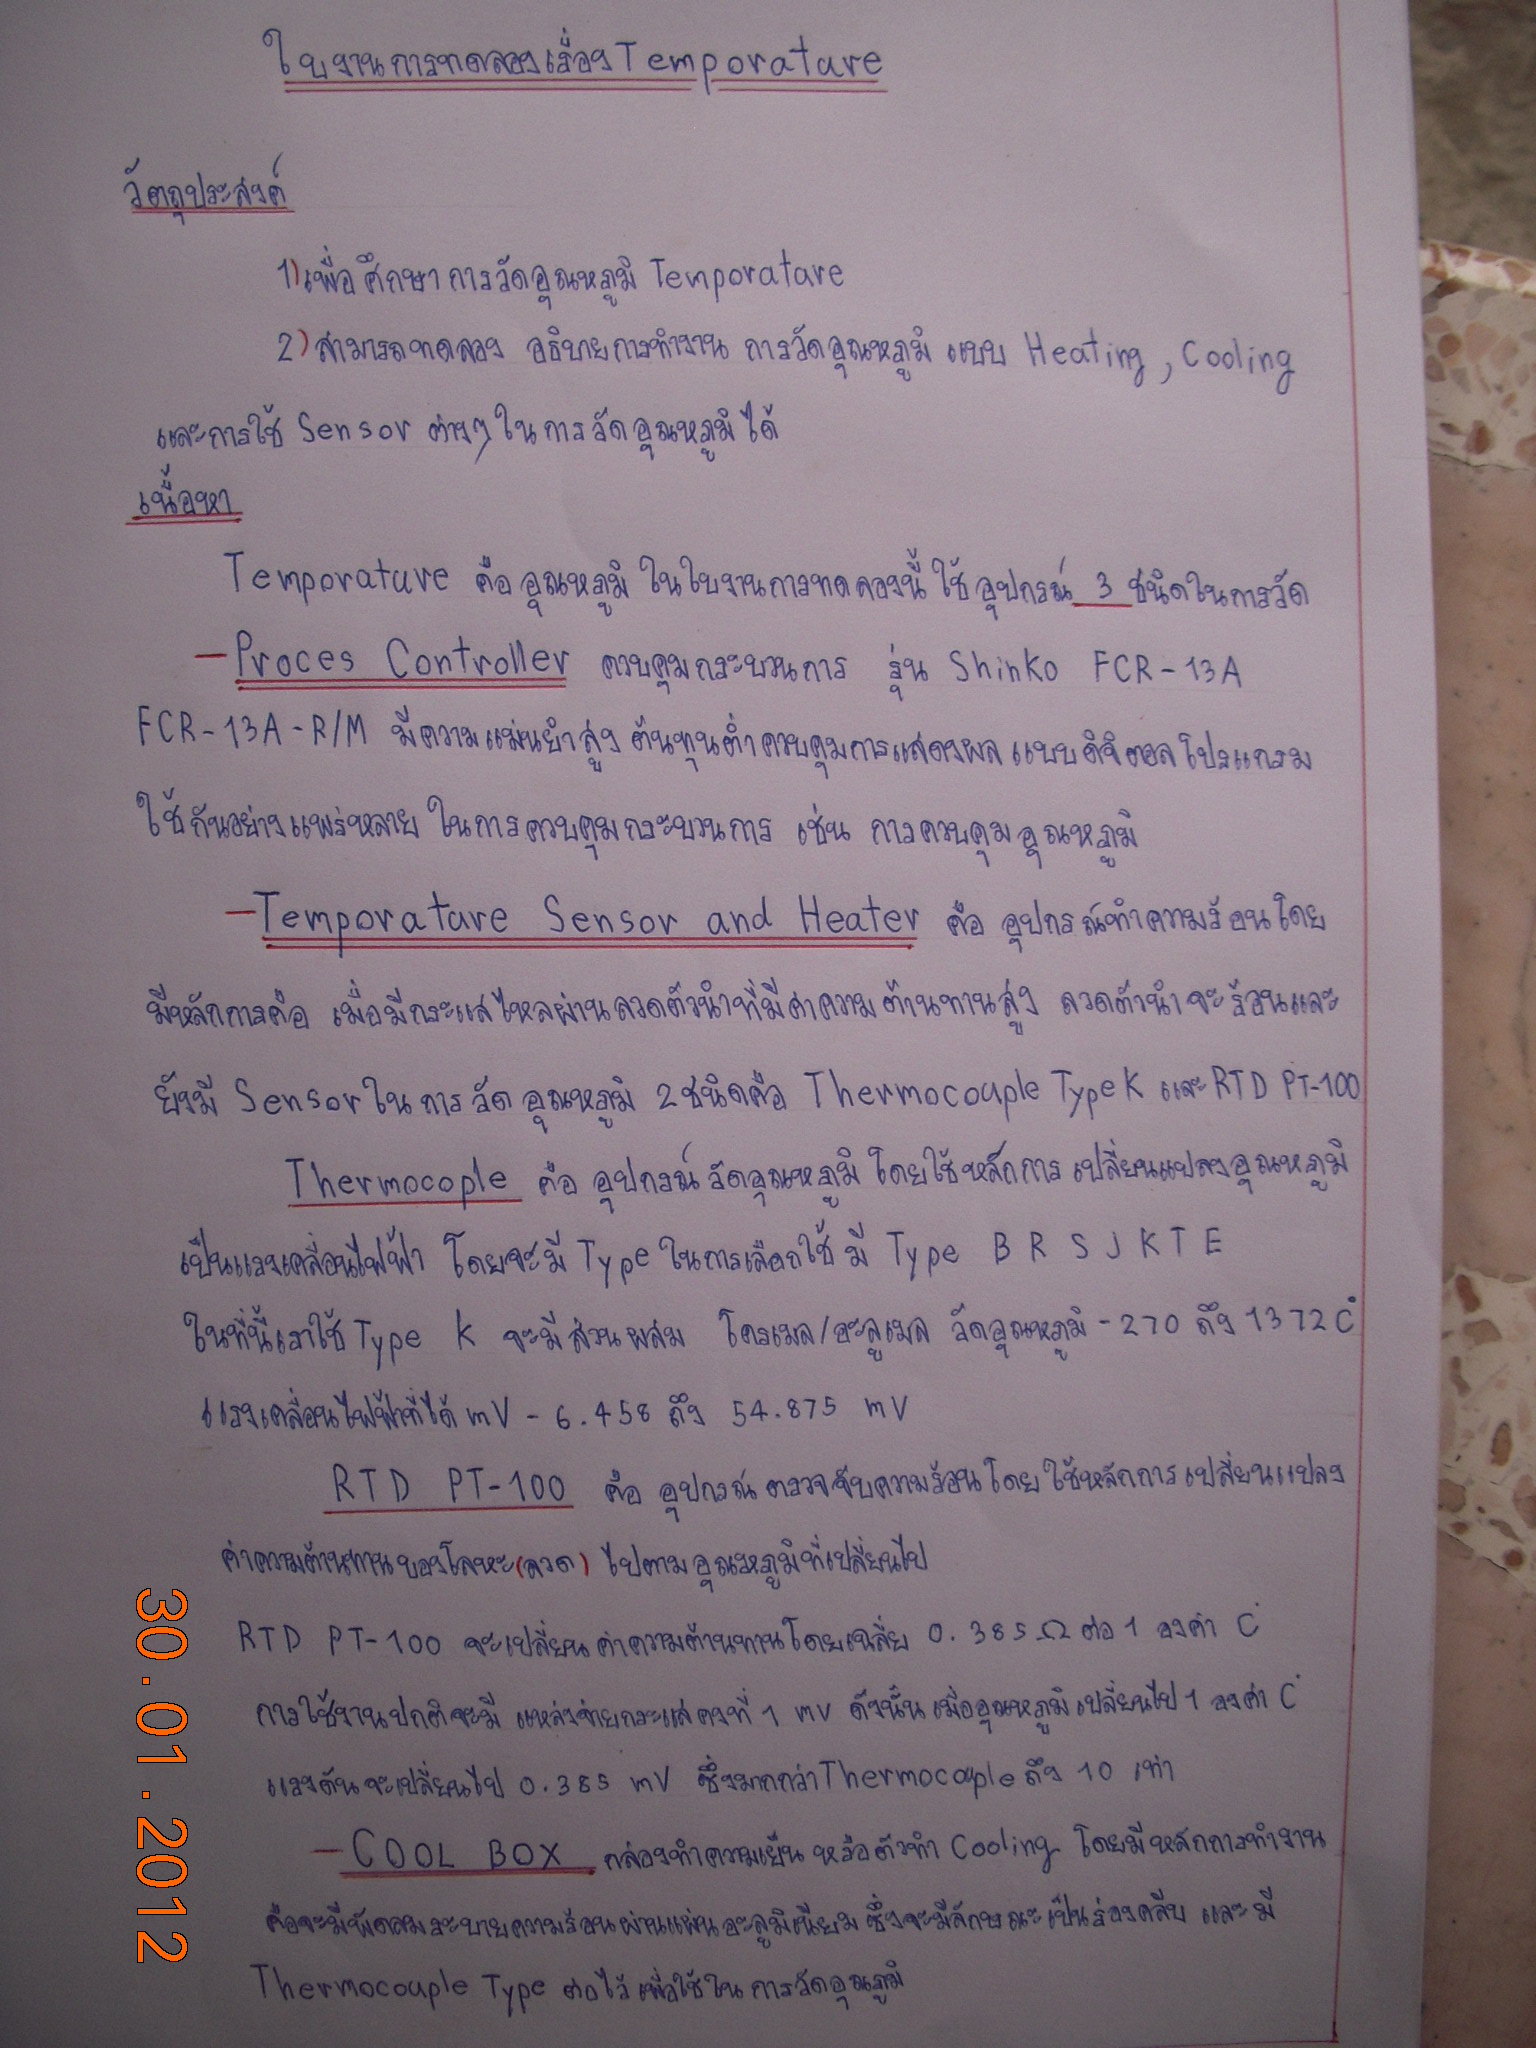 ใบงานการทดลองเรื่อง Temporature
วัตถุประสงค์
1) เพื่อศึกษาการวัดอุณหภูมิ Temporature
2) สามารถทดลอง อธิบายการทำงาน การวัดอุณหภูมิ แบบ Heating, Cooling
และการใช้ Sensor ต่างๆ ในการวัดอุณหภูมิได้
เนื้อหา
Temporature คือ อุณหภูมิ ในใบงานการทดลองนี้ ใช้อุปกรณ์ 3 ชนิดในการวัด
- Proces Controller ควบคุมกระบวนการ รุ่น Shinko FCR-13A
FCR-13A-R/M มีความแม่นยำสูง ต้นทุนต่ำควบคุมการแสดงผล แบบดิจิตอล โปรแกรม
ใช้กันอย่างแพร่หลาย ในการควบคุมกระบวนการ เช่น การควบคุมอุณหภูมิ
- Temporature Sensor and Heater คือ อุปกรณ์ทำความร้อนโดย
มีหลักการคือ เมื่อมีกระแสไหลผ่านลวดตัวนำที่มีค่าความต้านทานสูง ลวดตัวนำจะร้อนและ
ยังมี Sensor ในการวัดอุณหภูมิ 2 ชนิดคือ Thermocouple Type K และ RTD PT-100
Thermocople คือ อุปกรณ์วัดอุณหภูมิ โดยใช้หลักการ เปลี่ยนแปลงอุณหภูมิ
เป็นแรงเคลื่อนไฟฟ้า โดยจะมี Type ในการเลือกใช้ มี Type B R S J K T E
ในที่นี้เราใช้ Type K จะมีส่วนผสม โครเมล/อะลูเมล วัดอุณหภูมิ -270 ถึง 1372 C°
แรงเคลื่อนไฟฟ้าที่ได้ mV - 6.458 ถึง 54.875 mV
RTD PT-100 คือ อุปกรณ์ตรวจจับความร้อนโดยใช้หลักการเปลี่ยนแปลง
ค่าความต้านทานของโลหะ(ลวด) ไปตามอุณหภูมิที่เปลี่ยนไป
RTD PT-100 จะเปลี่ยนค่าความต้านทานโดยเฉลี่ย 0.385 Ω ต่อ 1 องศา C°
การใช้งานปกติจะมี แหล่งจ่ายกระแสคงที่ 1 mV ดังนั้น เมื่ออุณหภูมิเปลี่ยนไป 1 องศา C°
แรงดันจะเปลี่ยนไป 0.385 mV ซึ่งมากกว่า Thermocouple ถึง 10 เท่า
- COOL BOX กล่องทำความเย็น หรือตัวทำ Cooling โดยมีหลักการทำงาน
คือจะมีพัดลมระบายความร้อนผ่านแผ่นอะลูมิเนียม ซึ่งจะมีลักษณะเป็นร่องคลีบ และมี
Thermocouple Type ต่อไว้ เพื่อใช้ในการวัดอุณภูมิ
30.01.2012